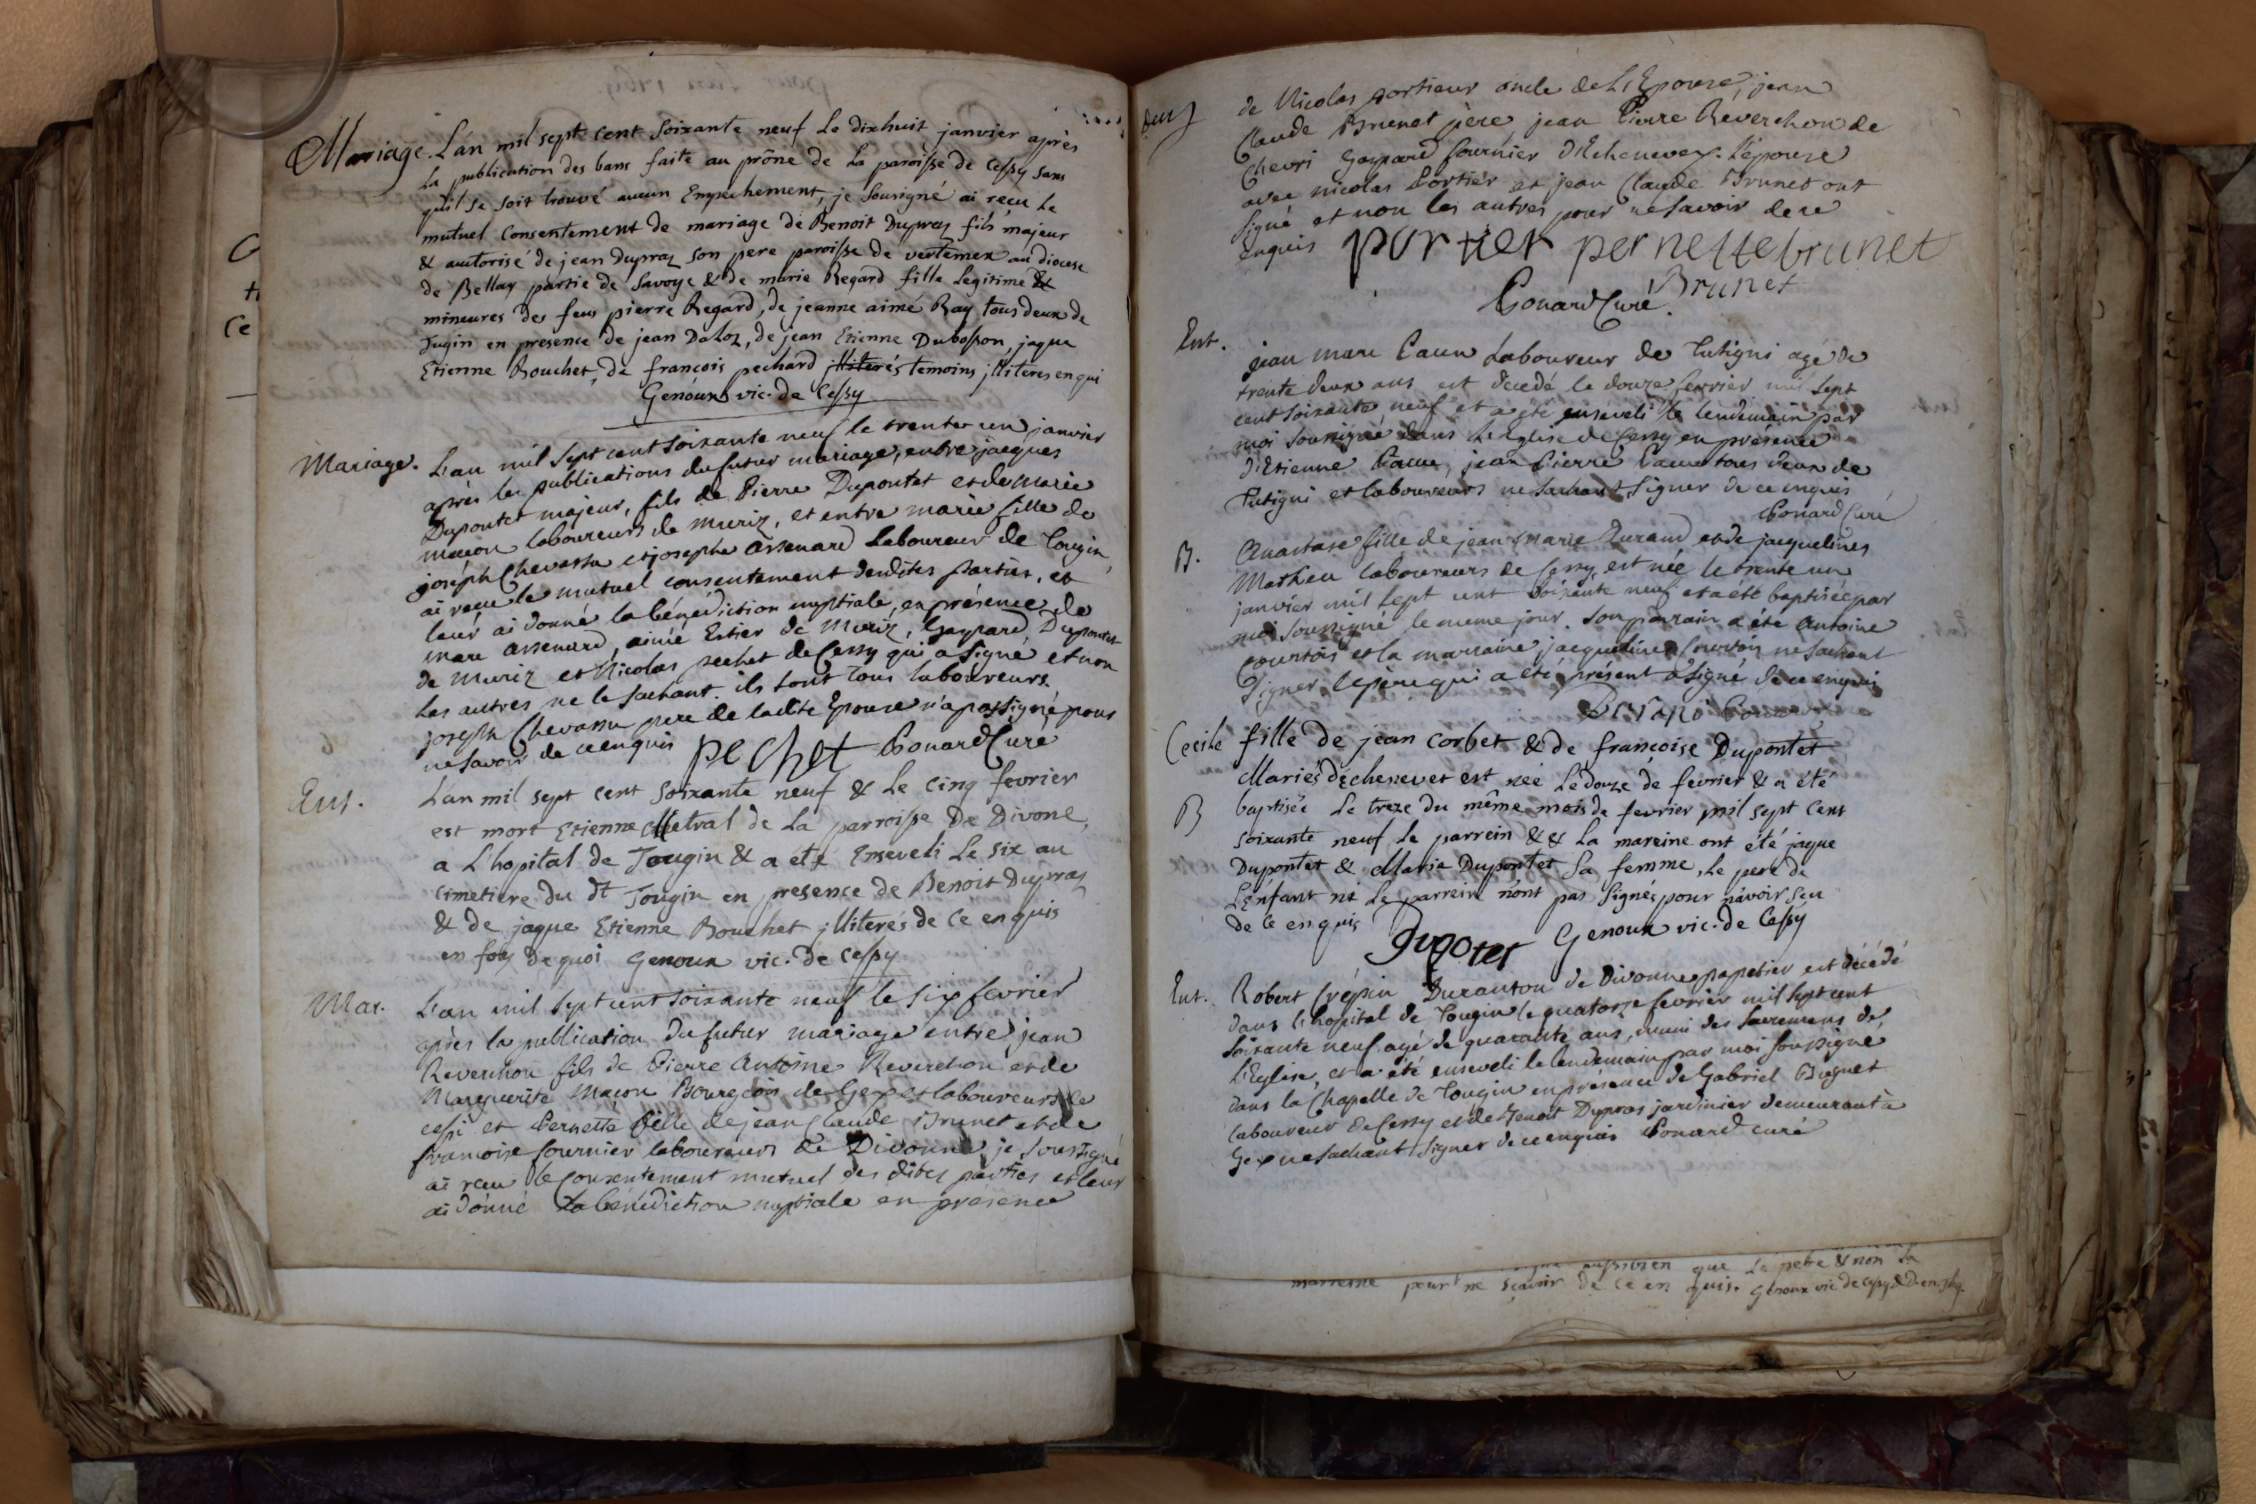 Mariage. L'an mil sept cent soixante neuf Le dixhuit janvier après
La publication des bans faite au prône de La paroisse de Cessy sans
qu'il se soit trouvé aucun Empechement, je sousigné ai reçu Le
mutuel consentement de mariage de Benoit Dupraz fils majeur
& autorisé de jean Dupraz son pere paroisse de vertemex au diocese
de Bellay partie de Savoye & de marie Regard fille Legitime &
mineures des feus pierre Regard, de jeanne aimé Ray tous deux de
Tugin en presence de jean Daloz, de jean Etienne Dubosson, jaque
Etienne Bouchet, de françois pechard illiterés temoins illiteres enqui
Genoux vic. de Cessy
Mariage. L'an mil sept cent soixante neuf le trente un janvier
après les publications du futur mariage, entre jacques
Dupontet majeur, fils de Pierre Dupontet et de Marie
macon laboureurs de muriz, et entre marie fille de
joseph Chevassu et josephe Arsenard Laboureur de Tougin,
ai reçu le mutuel consentement desdites parties, et
leur ai donné la bénédiction nuptiale, en présence de
marc Arsenard, aimé Estier de Muriz, Gaspard Dupontet
de Muriz et Nicolas pechet de Cessy qui a signé et non
Les autres ne le sachant. ils sont tous laboureurs.
joseph Chevassu pere de ladite Epouse n'a pas signé pour
ne savoir de ce enquis pechet Gonard Curé
Ent. L'an mil sept cent soixante neuf & Le cinq fevrier
est mort Etienne Metral de La parroisse De Divone
a L'hopital de Tougin & a eté Enseveli Le six au
cimetiere du dt Tougin en presence de Benoit Dupraz
& de jaque Etienne Bouchet illiterés de ce enquis
en foy de quoi Genoux vic. de Cessy
Mar. L'an mil sept cent soixante neuf le six fevrier
après la publication du futur mariage entre jean
Reverchon fils de Pierre Antoine Reverchon et de
Marguerite Macon Bourgeois de Gex et laboureurs de
cessi et Pernette fille de jean Claude Brunet et de
francoise fournier laboureurs de Divonne je soussigné
ai recu le consentement mutuel des dites parties et leur
ai donné la bénédiction nuptiale en présence
de Nicolas portieur oncle de L'Epouse, jean
Claude Brunet père, jean Pierre Reverchon de
Chevri Gaspard fournier d'Echenevex. L'épouse
avec nicolas Portier et jean Claude Brunet ont
signé et non les autres pour ne savoir de ce
enquis portier pernette brunet
Brunet
Gonard Curé.
Ent. jean marc Caun Laboureur de Tutigni agé de
trente deux ans est décedé le douze fevrier mil sept
cent soixante neuf et a été enseveli le lendemain par
moi soussigné dans L'Eglise de Cessy en présence
d'Etienne Caun, jean Pierre Caun tous deux de
Tutigni et laboureurs ne sachant signer de ce enquis
Gonard Curé
B. Anastase fille de jean marie Durand et de jacqueline
Mathieu laboureurs de Cessy est née le trente un
janvier mil sept cent soixante neuf et a été baptisée par
moi soussigné le meme jour. son parrain a été Antoine
Courtois et la marraine jacqueline Courtois ne sachant
signer. le père qui a été présent a signé de ce enquis
Cecile fille de jean corbet & de françoise Dupontet
Mariés d'echenevet est née Le douze de fevrier & a été
B baptisée Le treze du même mois de fevrier mil sept cent
soixante neuf Le parrein & & La mareine ont été jaque
Dupontet & Marie Dupontet Sa femme, Le pere de
L'Enfant ni Le parrein n'ont pas signés pour n'avoir sçu
de ce enquis Genoux vic. de Cessy
Ent. Robert Crépin Duranton de Divonne papetier est décédé
dans L'hopital de Tougin le quatorze fevrier mil sept cent
soixante neuf agé de quarante ans, muni des sacremens de
L'Eglise, et a été enseveli le lendemain par moi soussigné
dans la Chapelle de Tougin en présence de Gabriel Bugnet
laboureur de Cessy et de Benoit Dupras jardinier demeurant à
Gex ne sachant signer de ce enquis Gonard curé
aussi bien que Le pere & non La
marreine pour ne sçavoir de ce en quis. Genoux vic de Cessy